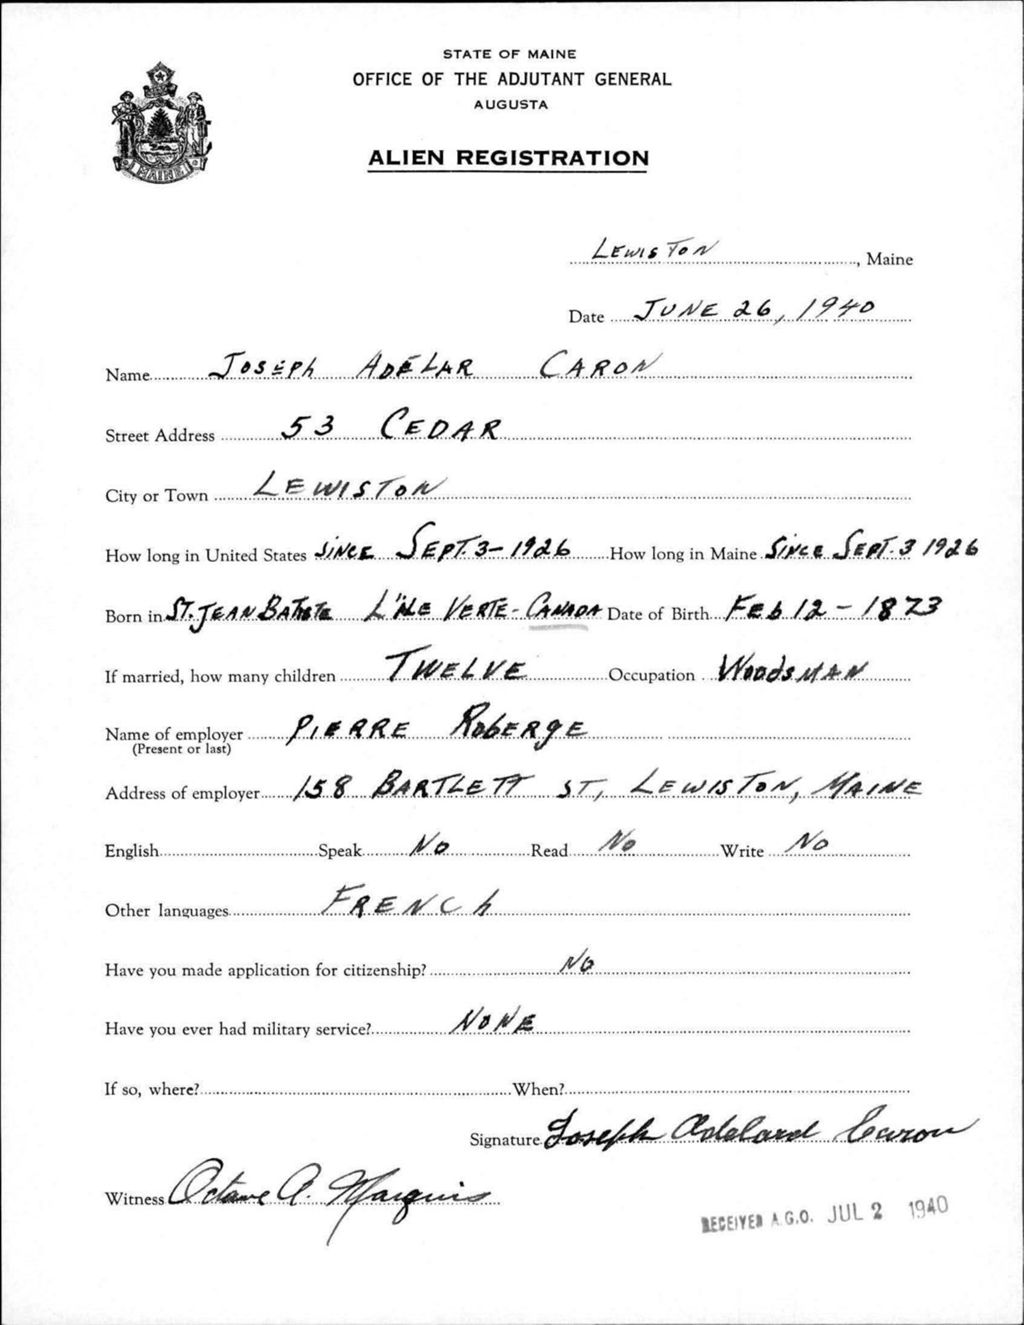 STATE OF MAINE
OFFICE OF THE ADJUTANT GENERAL
AUGUSTA
ALIEN REGISTRATION
MAINE
LEWISTON, Maine
Date JUNE 26, 1940
Name JOSEPh ADELAR CARON
Street Address 53 CEDAR
City or Town LEWISTON
How long in United States SINCE SEPT. 3-1926 How long in Maine SINCE SEPT. 3 1926
Born in ST. JEAN BATISTE L'ILE VERTE-CANADA Date of Birth FEb 12-1873
If married, how many children TWELVE Occupation WOODSMAN
Name of employer PIERRE RObERgE
(Present or last)
Address of employer 158 BARTLETT ST, LEWISTON, MAINE
English Speak NO Read No Write No
Other languages FRENCh
Have you made application for citizenship? NO
Have you ever had military service? NONE
If so, where? When?
Signature Joseph Adelard Caron
Witness Octave A. Marquis
RECEIVED A.G.O. JUL 2 1940